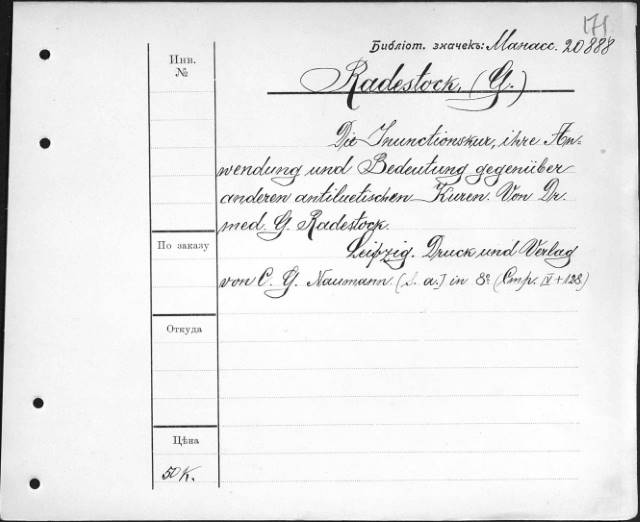 171
Библіот. значекъ: Манасс. 20888
Инв.
№
Radestock, (G.)
Die Inunctionskur, ihre An-
wendung und Bedeutung gegenüber
anderen antiluetischen Kuren. Von Dr.
med. G. Radestock.
По заказу
Leipzig. Druck und Verlag
von C. G. Naumann. [s. a.] in 8º (Стр. IV + 128)
Откуда
Цѣна
50 к.